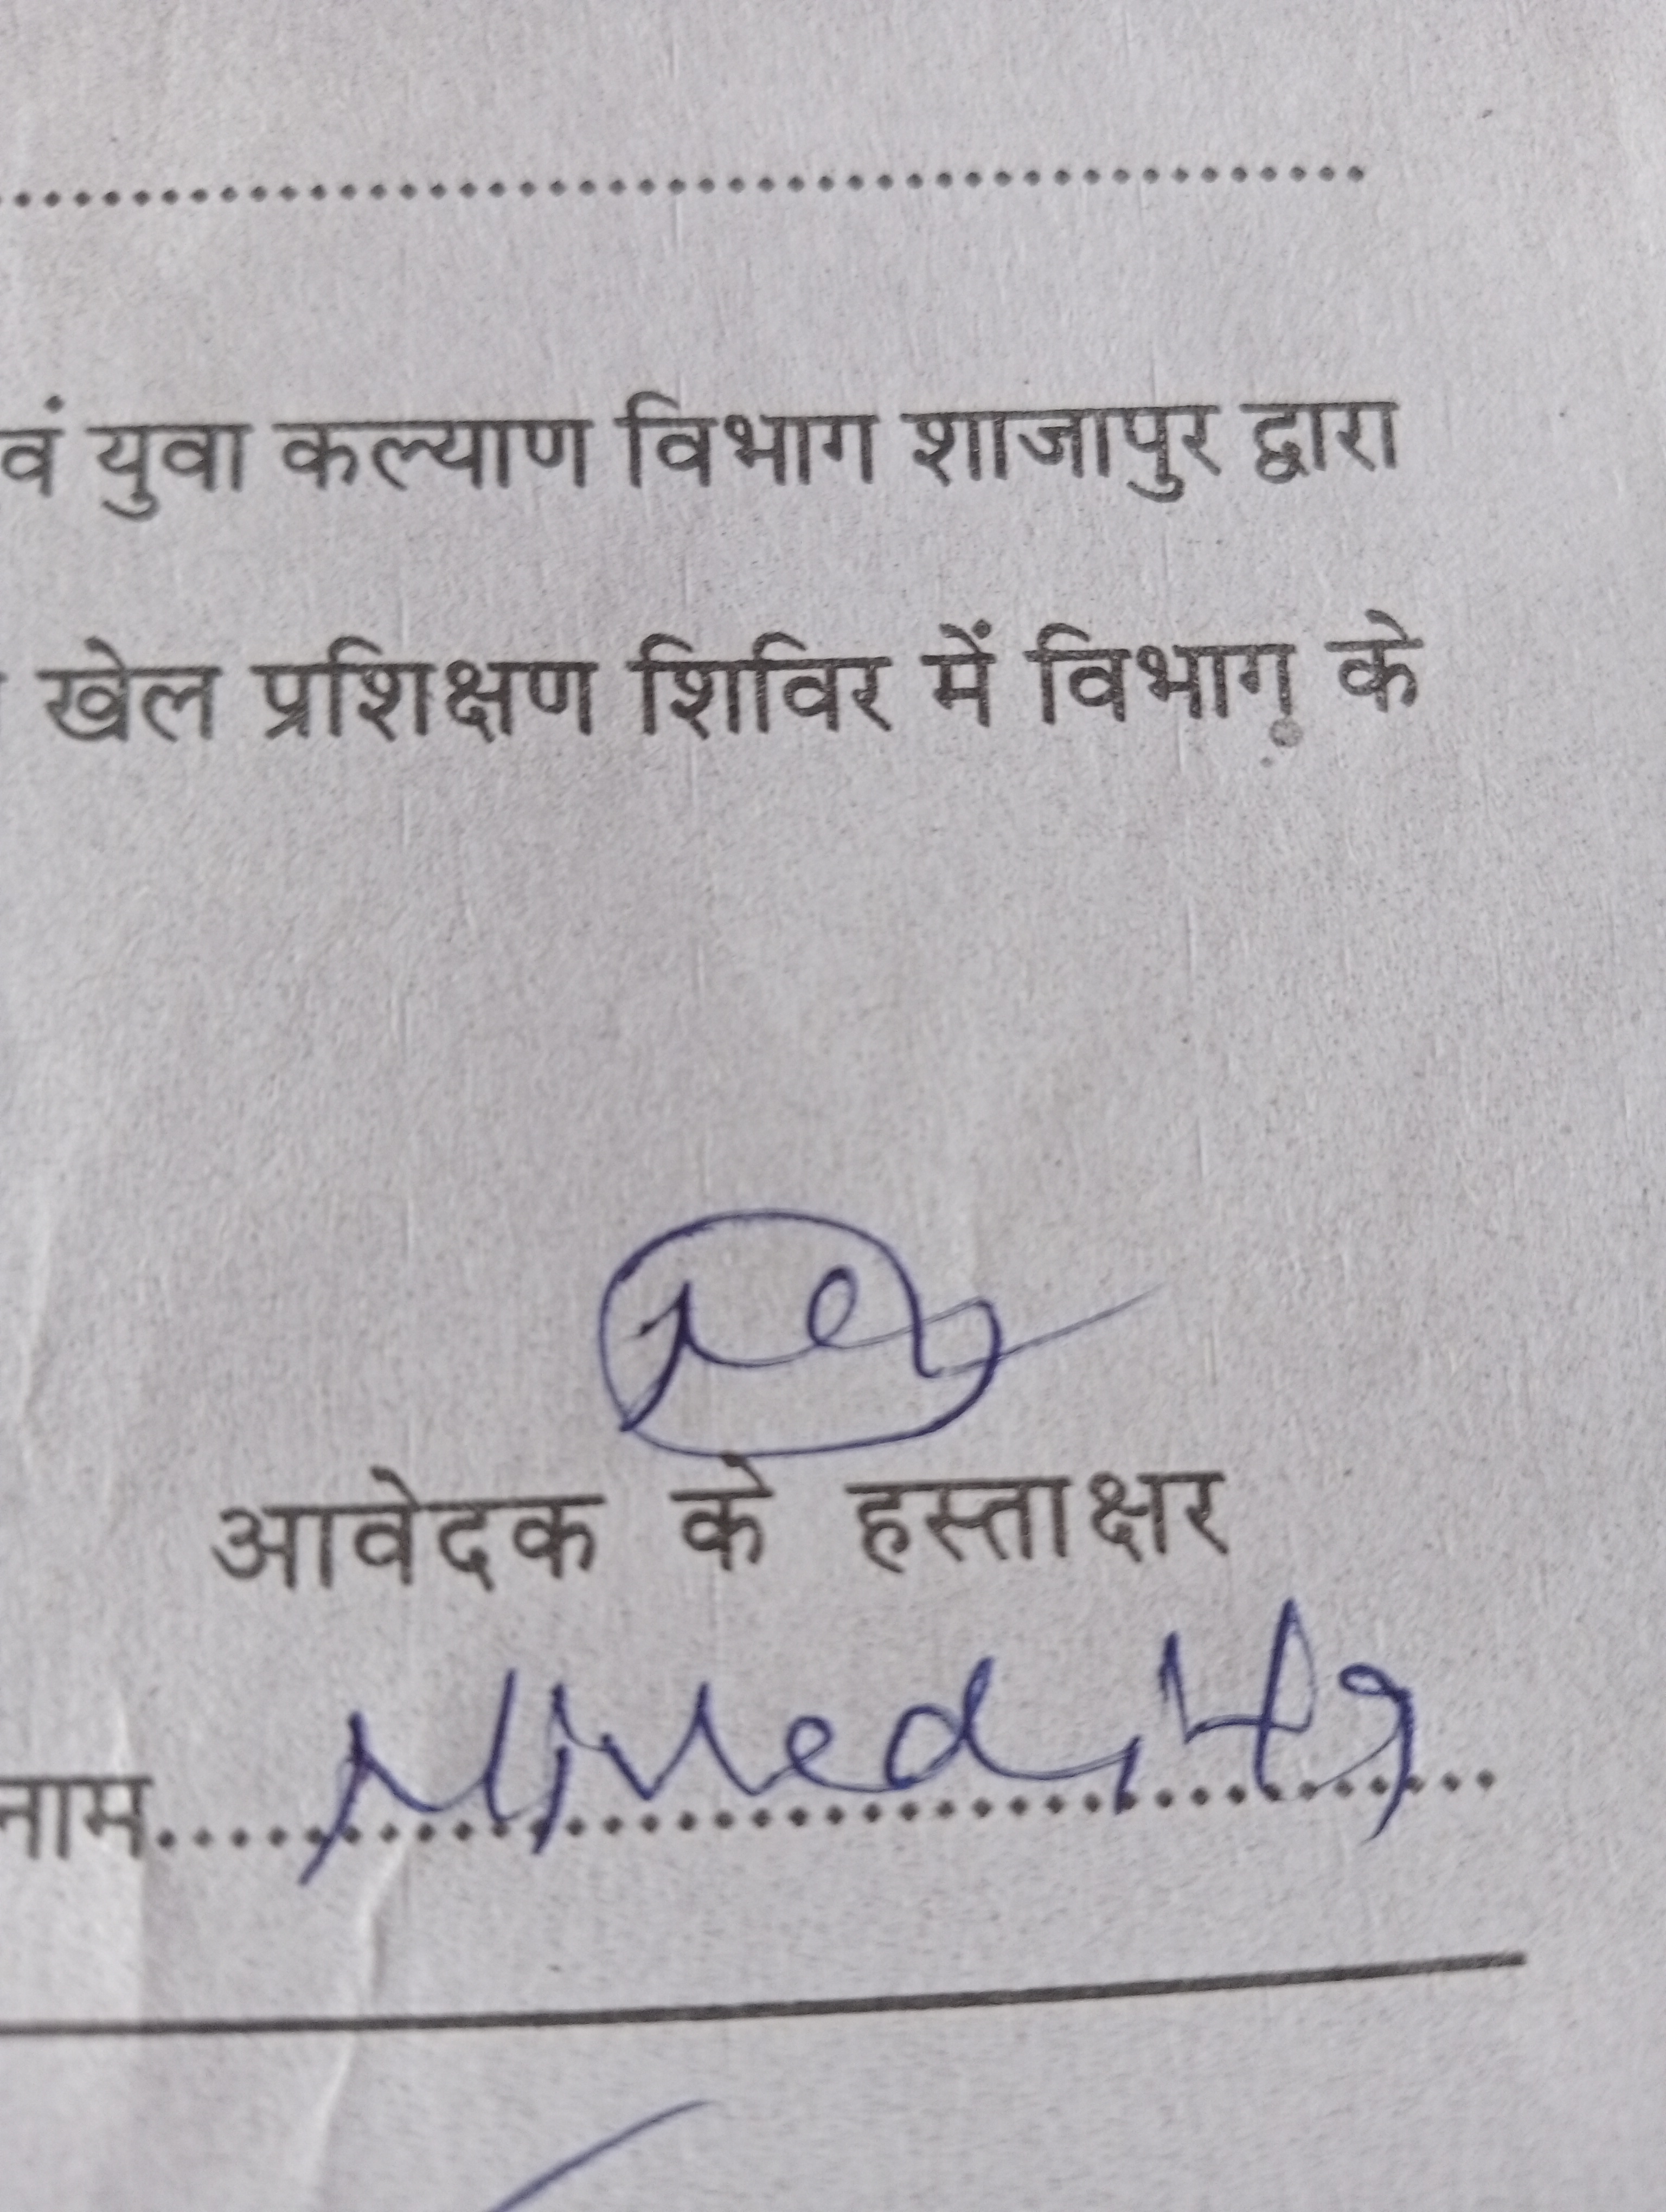 वं युवा कल्याण विभाग शाजापुर द्वारा
खेल प्रशिक्षण शिविर में विभाग के
आवेदक के हस्ताक्षर
नाम